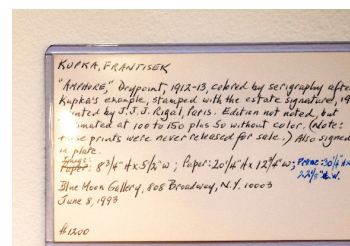 KUPKA, FRANTISEK
"AMPHORE," Drypoint, 1912-13, colored by serigraphy after
Kupka's example, stamped with the estate signature, 19
printed by J.J.J. Rigal, Paris. Edition not noted, but
estimated at 100 to 150 plus 50 without color. (Note:
these prints were never released for sale.) Also signed
in plate.
Image:
8 3/4" H x 5 1/2" W; Paper: 20 1/4" H x 12 3/4" W; Frame: 30 1/4" H x
Blue Moon Gallery, 808 Broadway, N.Y. 10003
June 8, 1998
#1200